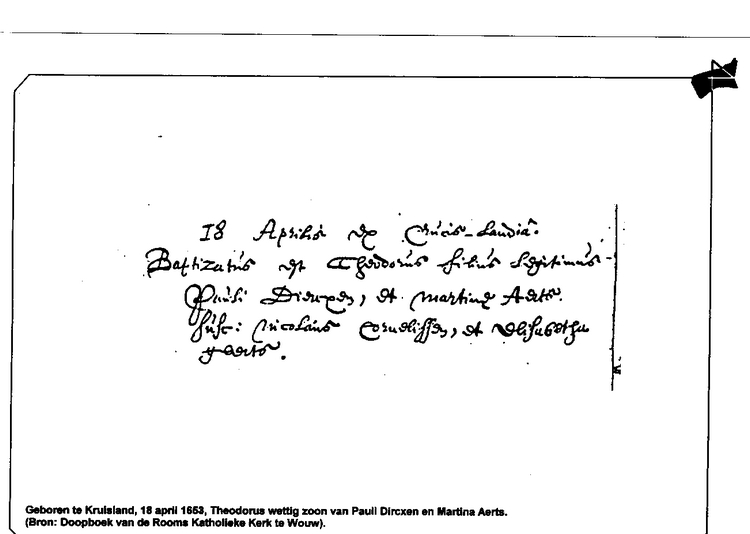 18 Aprilis ex Crucis-Landia.
Baptizatus est Theodorus filius legitimus
Pauli Dircxen, et Martinę Aerts.
susc: Nicolaus Cornelissen, et Elisabetha
Geboren te Kruisland, 18 april 1653, Theodorus wettig zoon van Pauli Dircxen en Martina Aerts.
(Bron: Doopboek van de Rooms Katholieke Kerk te Wouw).